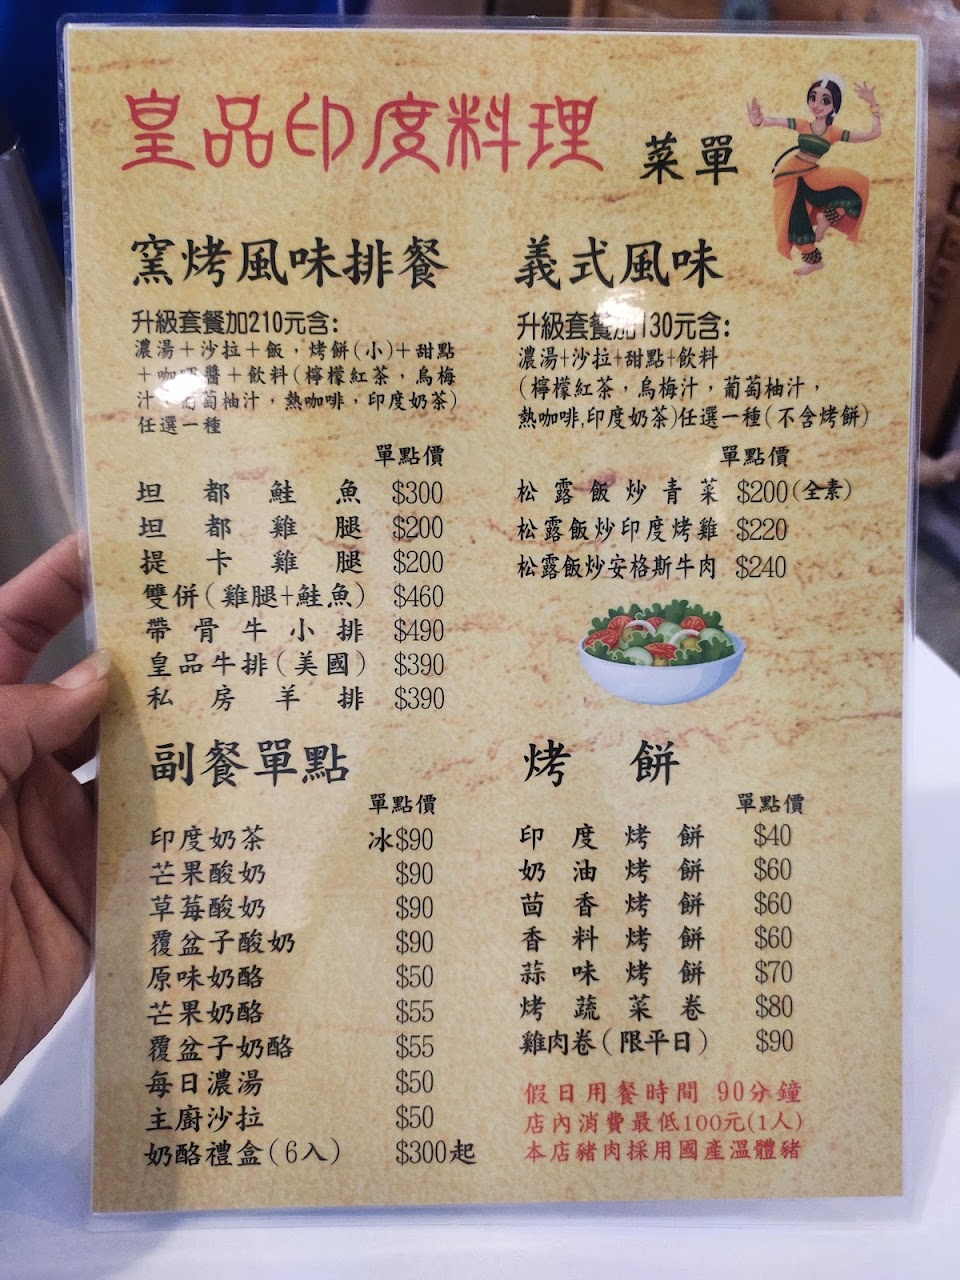 皇品印度料理 菜單
窯烤風味排餐
升級套餐加210元含:
濃湯＋沙拉＋飯，烤餅(小)＋甜點
＋咖哩醬＋飲料(檸檬紅茶，烏梅
汁，葡萄柚汁，熱咖啡，印度奶茶)
任選一種
單點價
坦都鮭魚 $300
坦都雞腿 $200
提卡雞腿 $200
雙併(雞腿+鮭魚) $460
帶骨牛小排 $490
皇品牛排(美國) $390
私房羊排 $390
義式風味
升級套餐加130元含:
濃湯+沙拉+甜點+飲料
(檸檬紅茶，烏梅汁，葡萄柚汁，
熱咖啡,印度奶茶)任選一種(不含烤餅)
單點價
松露飯炒青菜 $200(全素)
松露飯炒印度烤雞 $220
松露飯炒安格斯牛肉 $240
副餐單點
單點價
印度奶茶 冰$90
芒果酸奶 $90
草莓酸奶 $90
覆盆子酸奶 $90
原味奶酪 $50
芒果奶酪 $55
覆盆子奶酪 $55
每日濃湯 $50
主廚沙拉 $50
奶酪禮盒(6入) $300起
烤餅
單點價
印度烤餅 $40
奶油烤餅 $60
茴香烤餅 $60
香料烤餅 $60
蒜味烤餅 $70
烤蔬菜卷 $80
雞肉卷(限平日) $90
假日用餐時間 90分鐘
店內消費最低100元(1人)
本店豬肉採用國產溫體豬